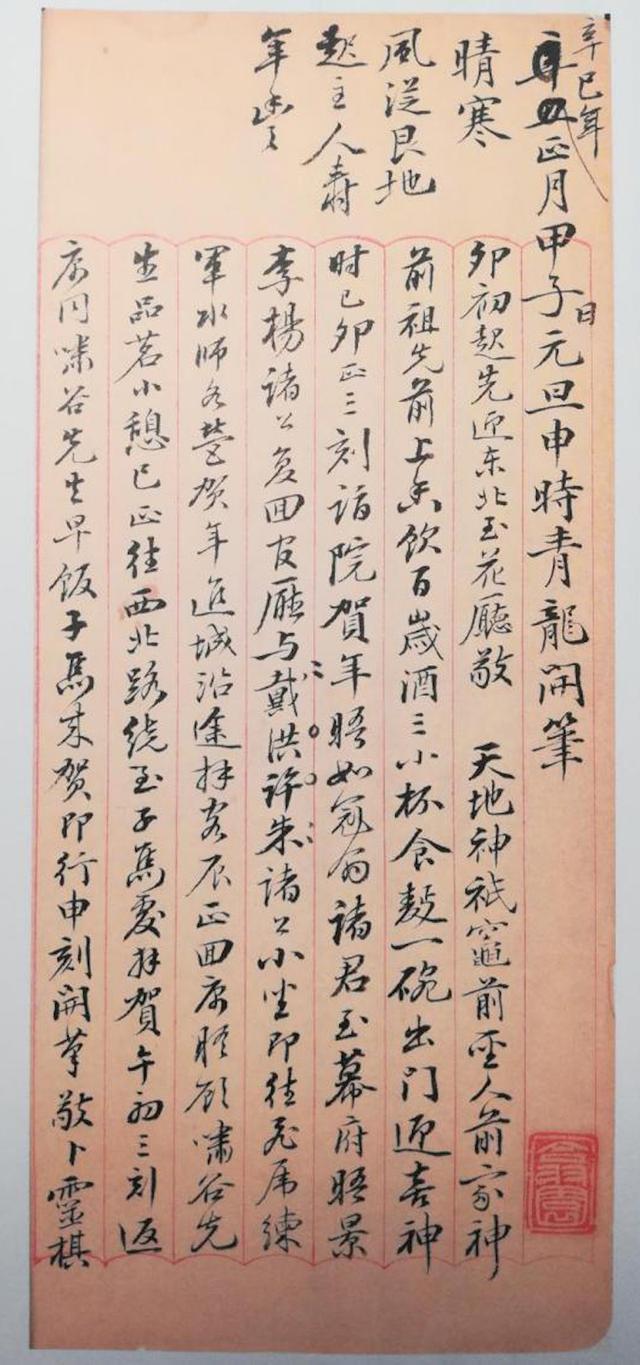 辛巳年
正月甲子日元旦申時青龍開筆
晴寒
風從艮地
起主人壽
年豊
卯初起先迎东北至花廳敬 天地神祇竈前聖人前家神
前祖先前上香飲百歲酒三小杯食麪一碗出門迎喜神
时已卯正三刻詣院賀年晤如冠翁諸君至幕府晤景
李楊諸公复回官廳与戴洪許朱諸公小坐即往虎席練
軍水师各营贺年進城沿途拜客辰正回寓晤顧嘯谷先
生品茗小憩巳正往西北路绕至子馬處拜賀午初三刻返
寓同嘯谷先生早饭子馬来贺即行申刻開筆敬卜靈棋